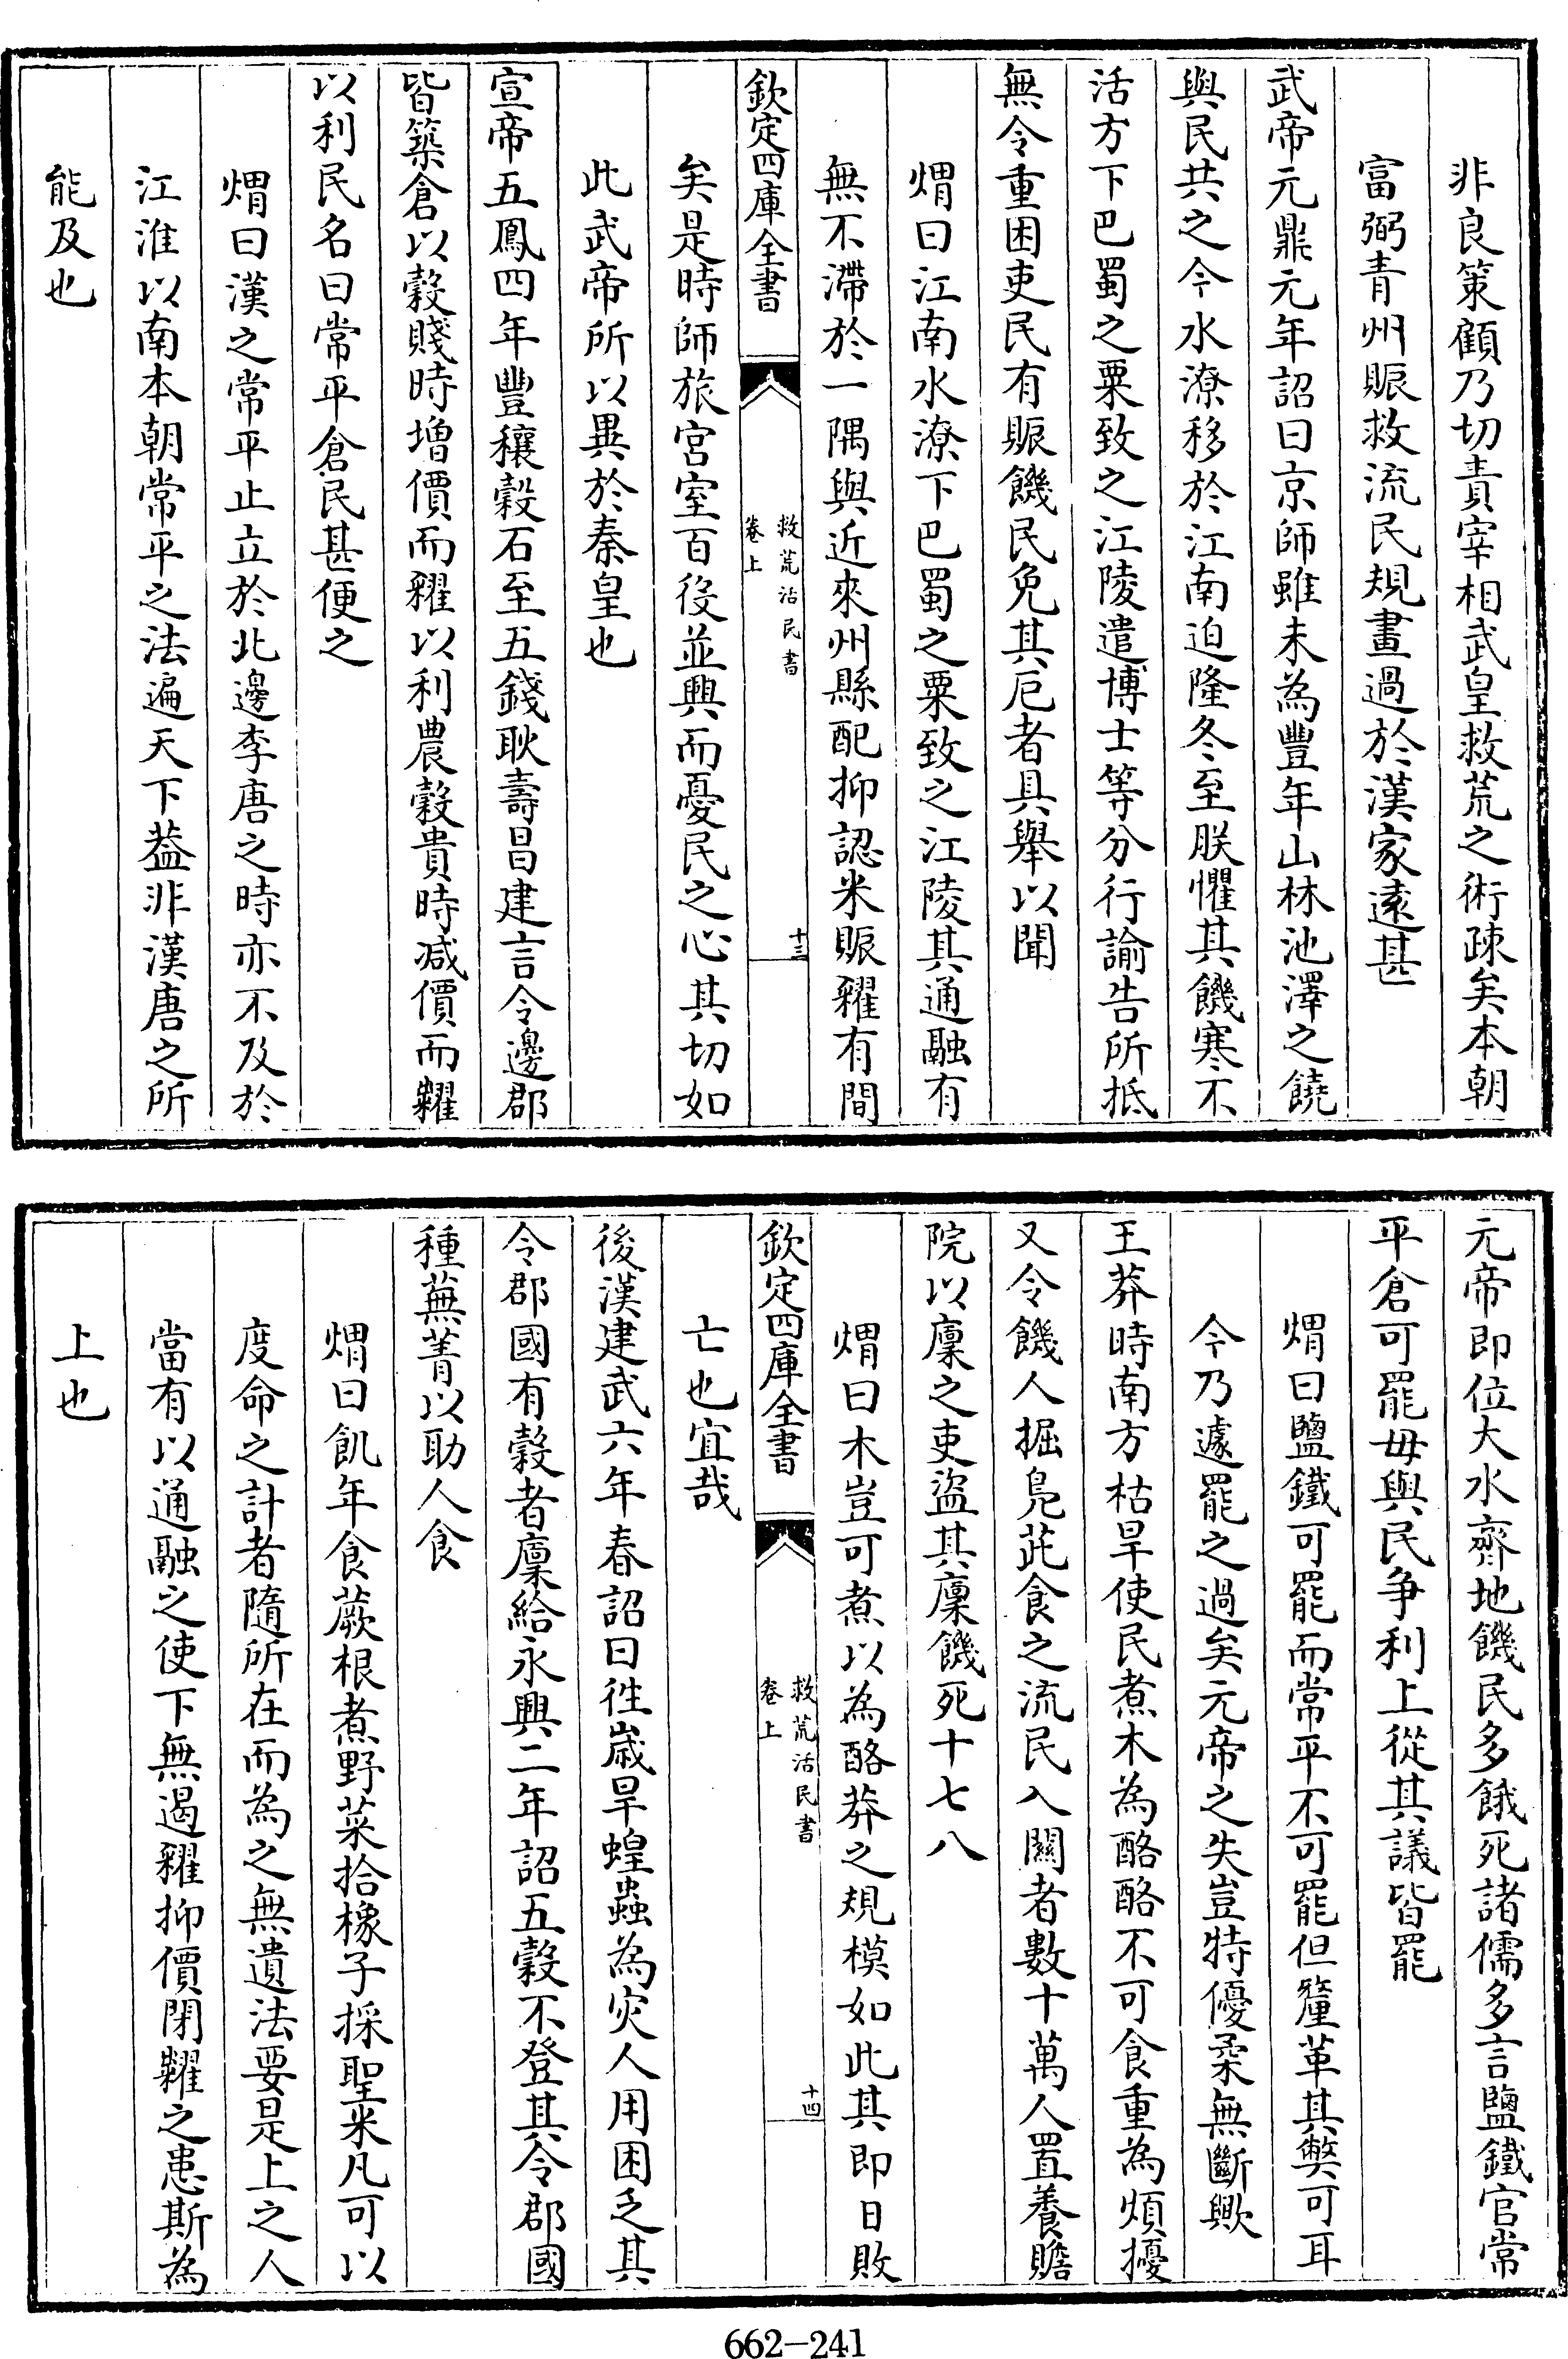 非良策顧乃切責宰相武皇救荒之術疎矣本朝
富弼青州賑救流民規畫過於漢家遠甚
武帝元鼎元年詔曰京師雖未為豐年山林池澤之饒
與民共之今水潦移於江南迫隆冬至朕懼其饑寒不
活方下巴蜀之粟致之江陵遣博士等分行諭告所抵
無令重困吏民有賑饑民免其厄者具舉以聞
煟曰江南水潦下巴蜀之粟致之江陵其通融有
無不滯於一隅與近來州縣配抑認米賑糶有間
欽定四庫全書
救荒活民書
卷上
十三
矣是時師旅宮室百役並興而憂民之心其切如
此武帝所以異於秦皇也
宣帝五鳳四年豐穰穀石至五錢耿壽昌建言令邊郡
皆築倉以穀賤時增價而糴以利農穀貴時減價而糶
以利民名曰常平倉民甚便之
煟曰漢之常平止立於北邊李唐之時亦不及於
江淮以南本朝常平之法遍天下葢非漢唐之所
能及也
元帝即位大水齊地饑民多餓死諸儒多言鹽鐵官常
平倉可罷毋與民争利上從其議皆罷
煟曰鹽鐵可罷而常平不可罷但釐革其弊可耳
今乃遽罷之過矣元帝之失豈特優柔無斷歟
王莽時南方枯旱使民煮木為酪酪不可食重為煩擾
又令饑人掘鳧茈食之流民入關者數十萬人置養贍
院以廩之吏盜其廩饑死十七八
煟曰木豈可煮以為酪莽之規模如此其即日敗
欽定四庫全書
救荒活民書
卷上
十四
亡也宜哉
後漢建武六年春詔曰徃嵗旱蝗蟲為灾人用困乏其
令郡國有穀者廩給永興二年詔五穀不登其令郡國
種蕪菁以助人食
煟曰飢年食蕨根煮野菜拾橡子採聖米凡可以
度命之計者隨所在而為之無遺法要是上之人
當有以通融之使下無遏糴抑價閉糶之患斯為
上也
662-241